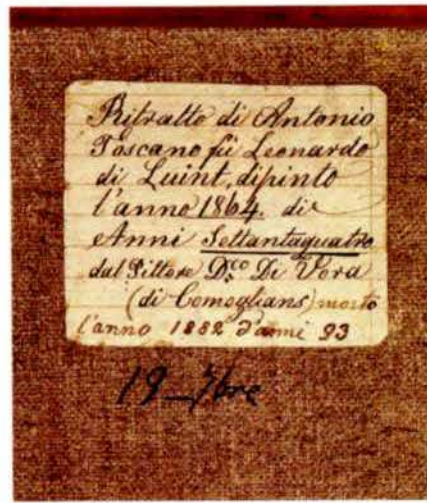 Ritratto di Antonio
Toscano fù Leonardo
di Luint, dipinto
l'anno 1864. di
Anni Settantaquatro
dal Pittore D.co Di Vora
(di Comeglians) morto
l'anno 1882 d'anni 93
19_7bre